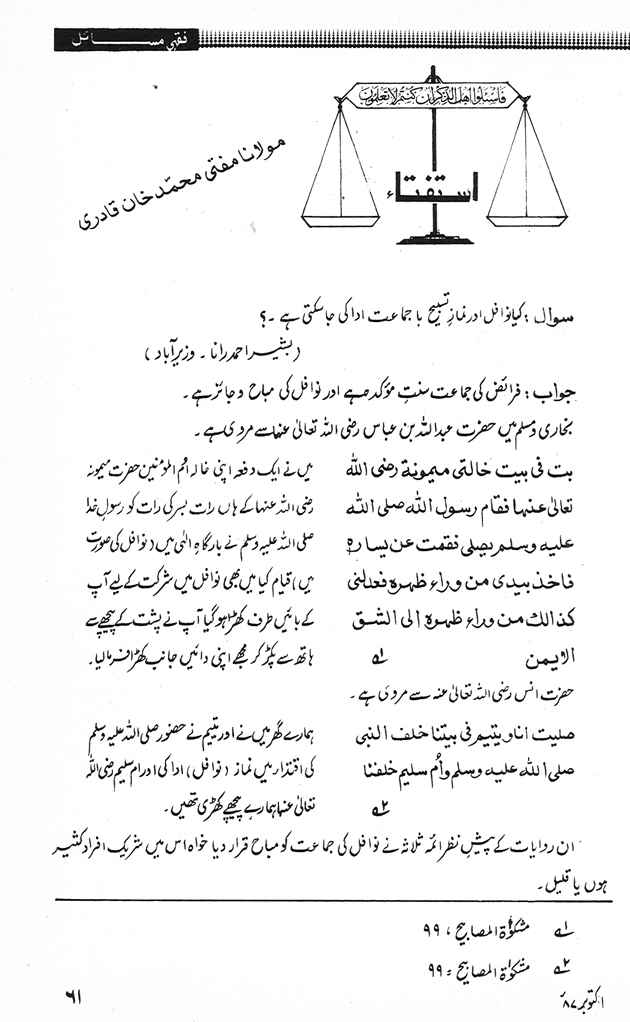 فقہی مسائل
فاسئلوا اھل الذکر ان کنتم لا تعلمون
استفتاء
مولانا مفتی محمد خان قادری
سوال : کیا نوافل اور نماز تسبیح با جماعت ادا کی جا سکتی ہے ۔؟
( بشیر احمد رانا ۔ وزیرآباد )
جواب : فرائض کی جماعت سنتِ مؤکدہ ہے اور نوافل کی مباح و جائز ہے ۔
بخاری و مسلم میں حضرت عبداللہ بن عباس رضی اللہ تعالیٰ عنہما سے مروی ہے ۔
بت فی بیت خالتی میمونة رضی اللہ
تعالیٰ عنہا فقام رسول اللہ صلی اللہ
علیہ وسلم یصلی فقمت عن یسارہ
فاخذ بیدی من وراء ظہرہ فعدلنی
کذالک من وراء ظہرہ الی الشق
الایمن ؎۱
میں نے ایک دفعہ اپنی خالہ ام المؤمنین حضرت میمونہ
رضی اللہ عنہا کے ہاں رات بسر کی رات کو رسولِ خدا
صلی اللہ علیہ وسلم نے بارگاہِ الٰہی میں (نوافل کی صورت
میں) قیام کیا میں بھی نوافل میں شرکت کے لیے آپ
کے بائیں طرف کھڑا ہو گیا آپ نے پشت کے پیچھے سے
ہاتھ سے پکڑ کر مجھے اپنی دائیں جانب کھڑا فرما لیا۔
حضرت انس رضی اللہ تعالیٰ عنہ سے مروی ہے ۔
صلیت انا و یتیم فی بیتنا خلف النبی
صلی اللہ علیہ وسلم وأم سلیم خلفنا
؎۲
ہمارے گھر میں نے اور یتیم نے حضور صلی اللہ علیہ وسلم
کی اقتدار میں نماز (نوافل) ادا کی اور ام سلیم رضی اللہ
تعالیٰ عنہا ہمارے پیچھے کھڑی تھیں۔
ان روایات کے پیشِ نظر ائمہ ثلاثہ نے نوافل کی جماعت کو مباح قرار دیا خواہ اس میں شریک افراد کثیر
ہوں یا قلیل ۔
؎۱ مشکوٰۃ المصابیح ، ۹۹
؎۲ مشکوٰۃ المصابیح = ۹۹
اکتوبر ۸۷ء
۶۱